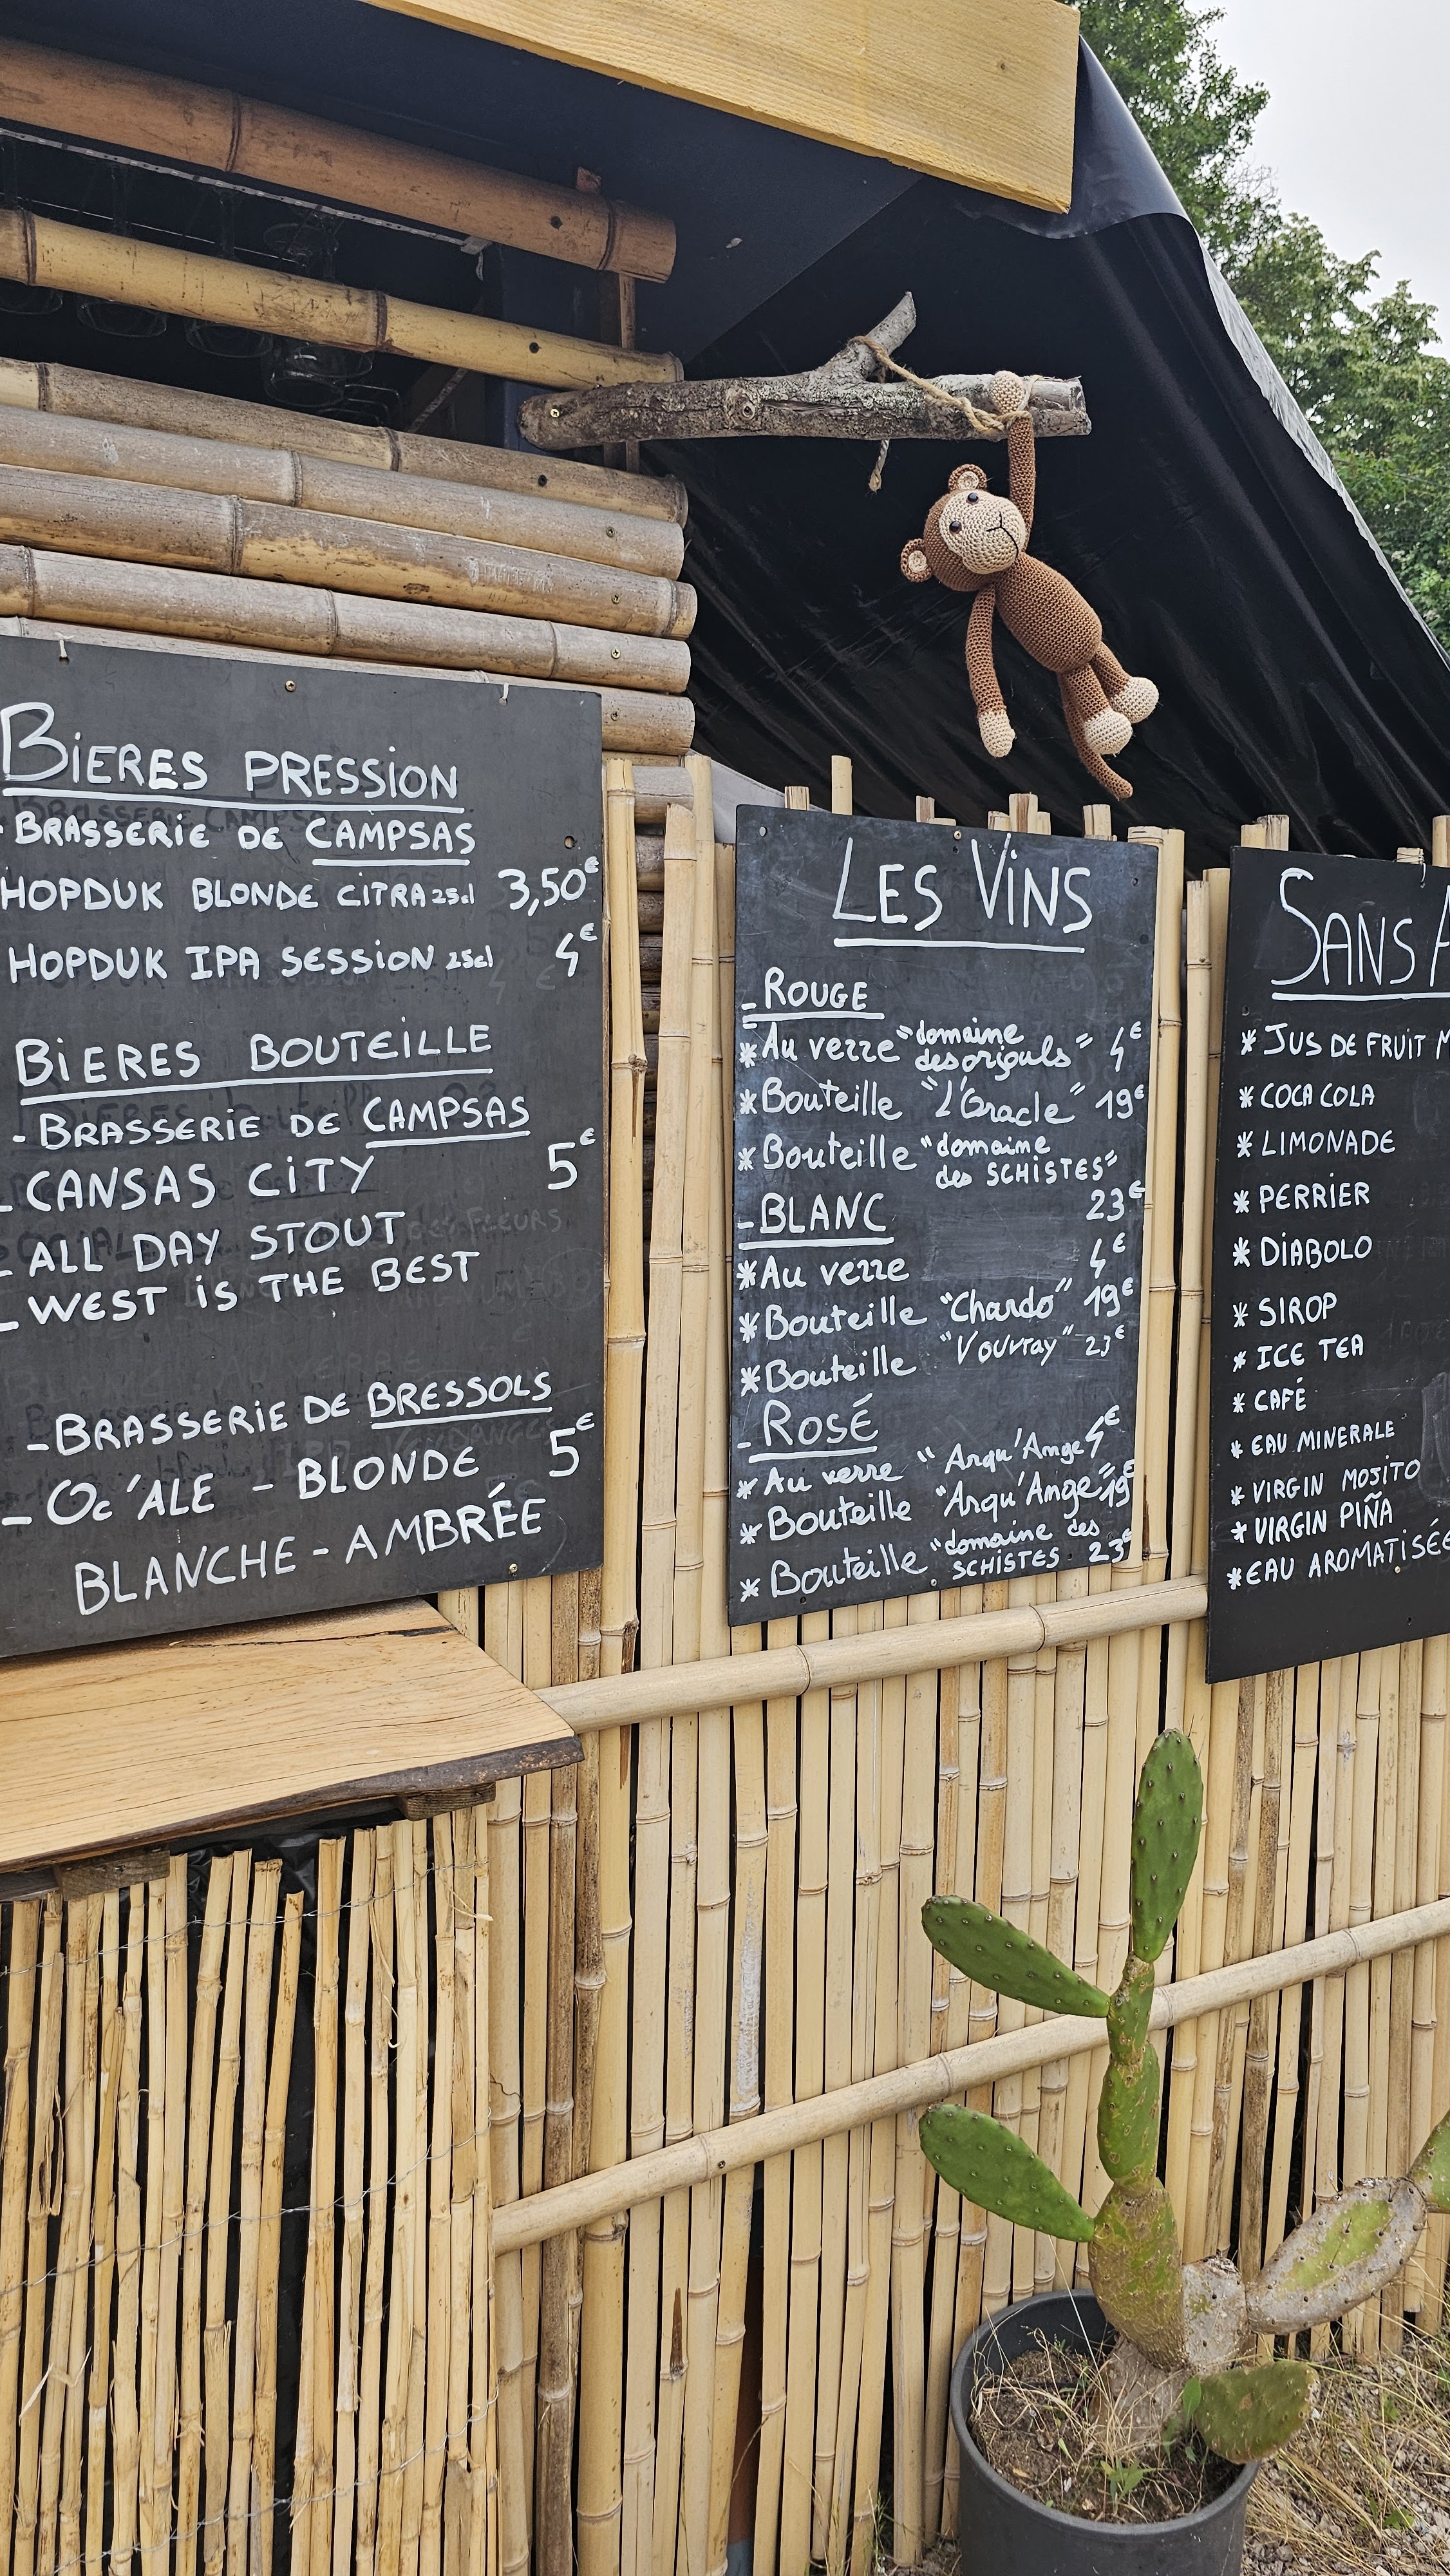 BIERES PRESSION
- BRASSERIE DE CAMPSAS
HOPDUK BLONDE CITRA 25cl 3,50€
HOPDUK IPA SESSION 25cl 4€
BIERES BOUTEILLE
- BRASSERIE DE CAMPSAS
- CANSAS CITY 5€
- ALL DAY STOUT
- WEST IS THE BEST
- BRASSERIE DE BRESSOLS
- Oc'ALE - BLONDE 5€
BLANCHE - AMBRÉE
LES VINS
- ROUGE
* Au verre "domaine
des orguls" 4€
* Bouteille "L'Oracle" 19€
* Bouteille "domaine
des SCHISTES"
23€
- BLANC
* Au verre 4€
* Bouteille "Chardo" 19€
* Bouteille "Vouvray" 23€
- ROSÉ
* Au verre "Arqu'Ange 4€
* Bouteille "Arqu'Ange" 19€
* Bouteille "domaine des
SCHISTES 23€
SANS A
* JUS DE FRUIT M
* COCA COLA
* LIMONADE
* PERRIER
* DIABOLO
* SIROP
* ICE TEA
* CAFÉ
* EAU MINERALE
* VIRGIN MOJITO
* VIRGIN PIÑA
* EAU AROMATISÉE